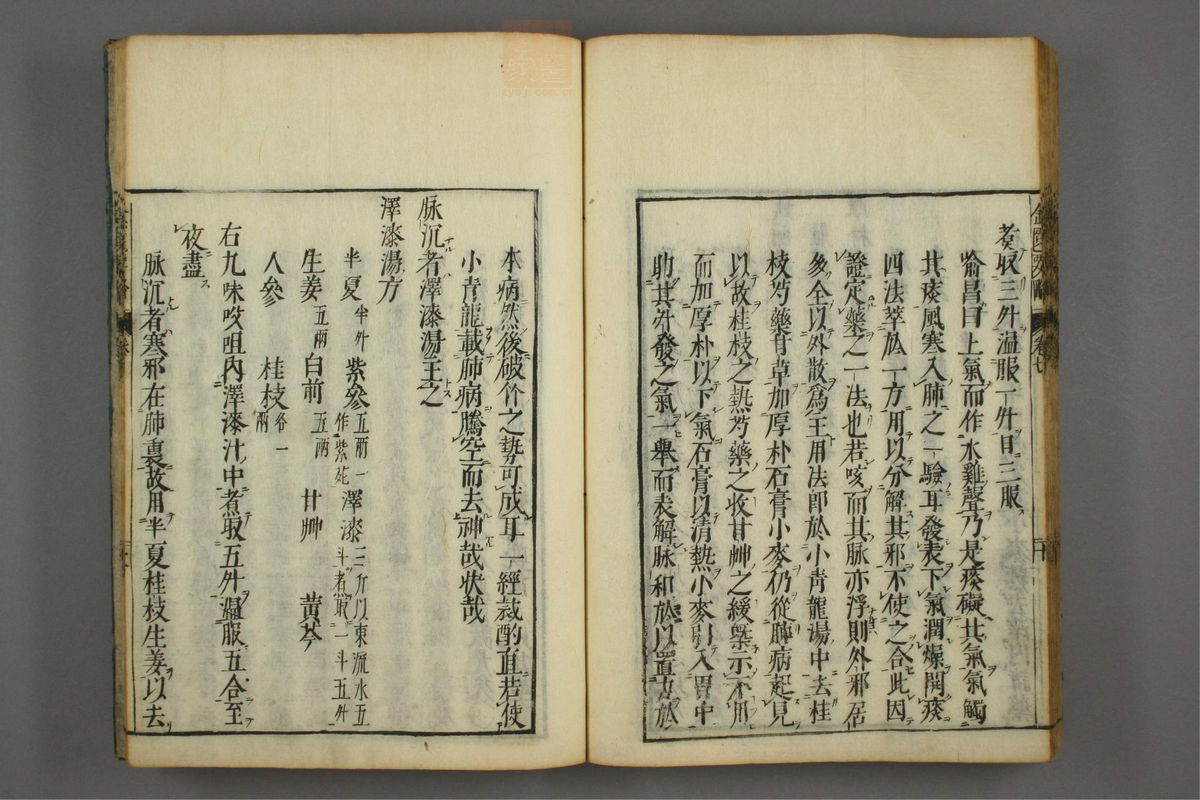 煑取三升温服一升日三服
喻昌曰上氣而作水雞聲乃是痰礙其氣氣觸
其痰風寒入肺之一驗耳發表下氣潤燥開痰
四法萃於一方用以分解其邪不使之合此因
證定藥之一法也若咳而其脉亦浮則外邪居
多全以外散為主用法卽於小青龍湯中去桂
枝芍藥甘草加厚朴石膏小麥仍從肺病起見
以故桂枝之熱芍藥之收甘艸之緩槩示不用
而加厚朴以下氣石膏以清熱小麥引入胃中
助其升發之氣一舉而表解脉和於以置力於
本病然後破竹之勢可成耳一經裁酌直若使
小青龍載肺病騰空而去神哉狀哉
脉沉者澤漆湯主之
澤漆湯方
半夏半升 紫參五兩一作紫菀 澤漆三斤以東流水五斗煮取一斗五升
生姜五兩 白前五兩 甘艸 黃芩
人參 桂枝各一兩
右九味㕮咀內澤漆汁中煮取五升溫服五合至
夜盡
脉沉者寒邪在肺裏故用半夏桂枝生姜以去
金匱
卷七